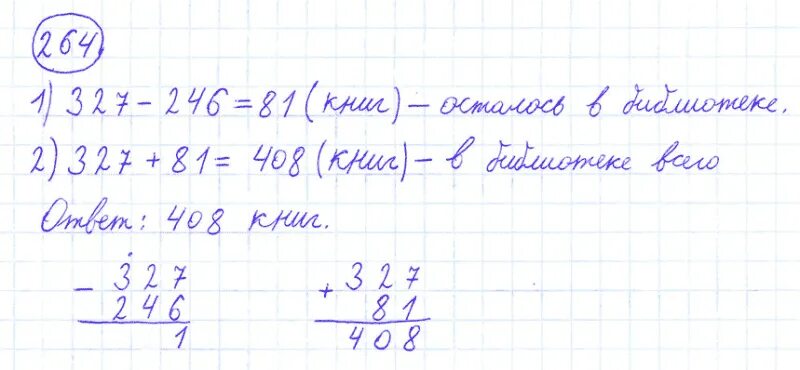 264
1) 327 - 246 = 81 (книг) - осталось в библиотеке.
2) 327 + 81 = 408 (книг) - в библиотеке всего
Ответ: 408 книг.
- 327
246
1
+ 327
81
408